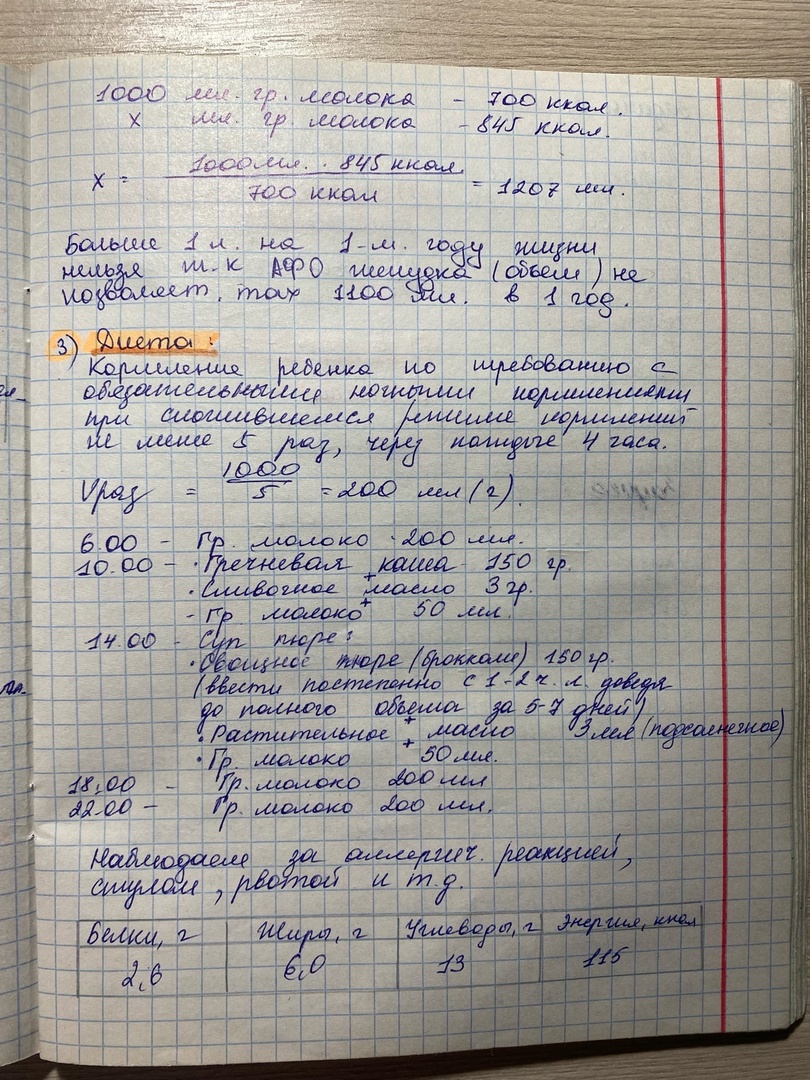 1000 мл. гр. молока - 700 ккал.
х мл. гр молока - 845 ккал.
х = 1000 мл. · 845 ккал / 700 ккал = 1207 мл.
Больше 1 л. на 1-м. году жизни
нельзя т.к АФО желудка (объем) не
позволяет. max 1100 мл. в 1 год.
3) Диета:
Кормление ребенка по требованию с
обязательными ночными кормлениями
при сложившемся режиме кормлений
не менее 5 раз, через каждые 4 часа.
Vраз = 1000/5 = 200 мл (г).
6.00 - Гр. молоко 200 мл.
10.00 - · Гречневая каша - 150 гр.
+
· Сливочное масло 3 гр.
+
- Гр. молоко 50 мл.
14.00 - Суп пюре:
· Овощное пюре (брокколи) 150 гр.
(ввести постепенно с 1-2 ч. л. доведя
до полного объема за 5-7 дней)
+
· Растительное масло 3 мл (подсолнечное)
+
· Гр. молоко 50 мл.
18:00 - Гр. молоко 200 мл
22.00 - Гр. молоко 200 мл.
Наблюдаем за аллергич. реакцией,
стулом, рвотой и т.д.
Белки, г Жиры, г Углеводы, г Энергия, ккал
2,6 6,0 13 115